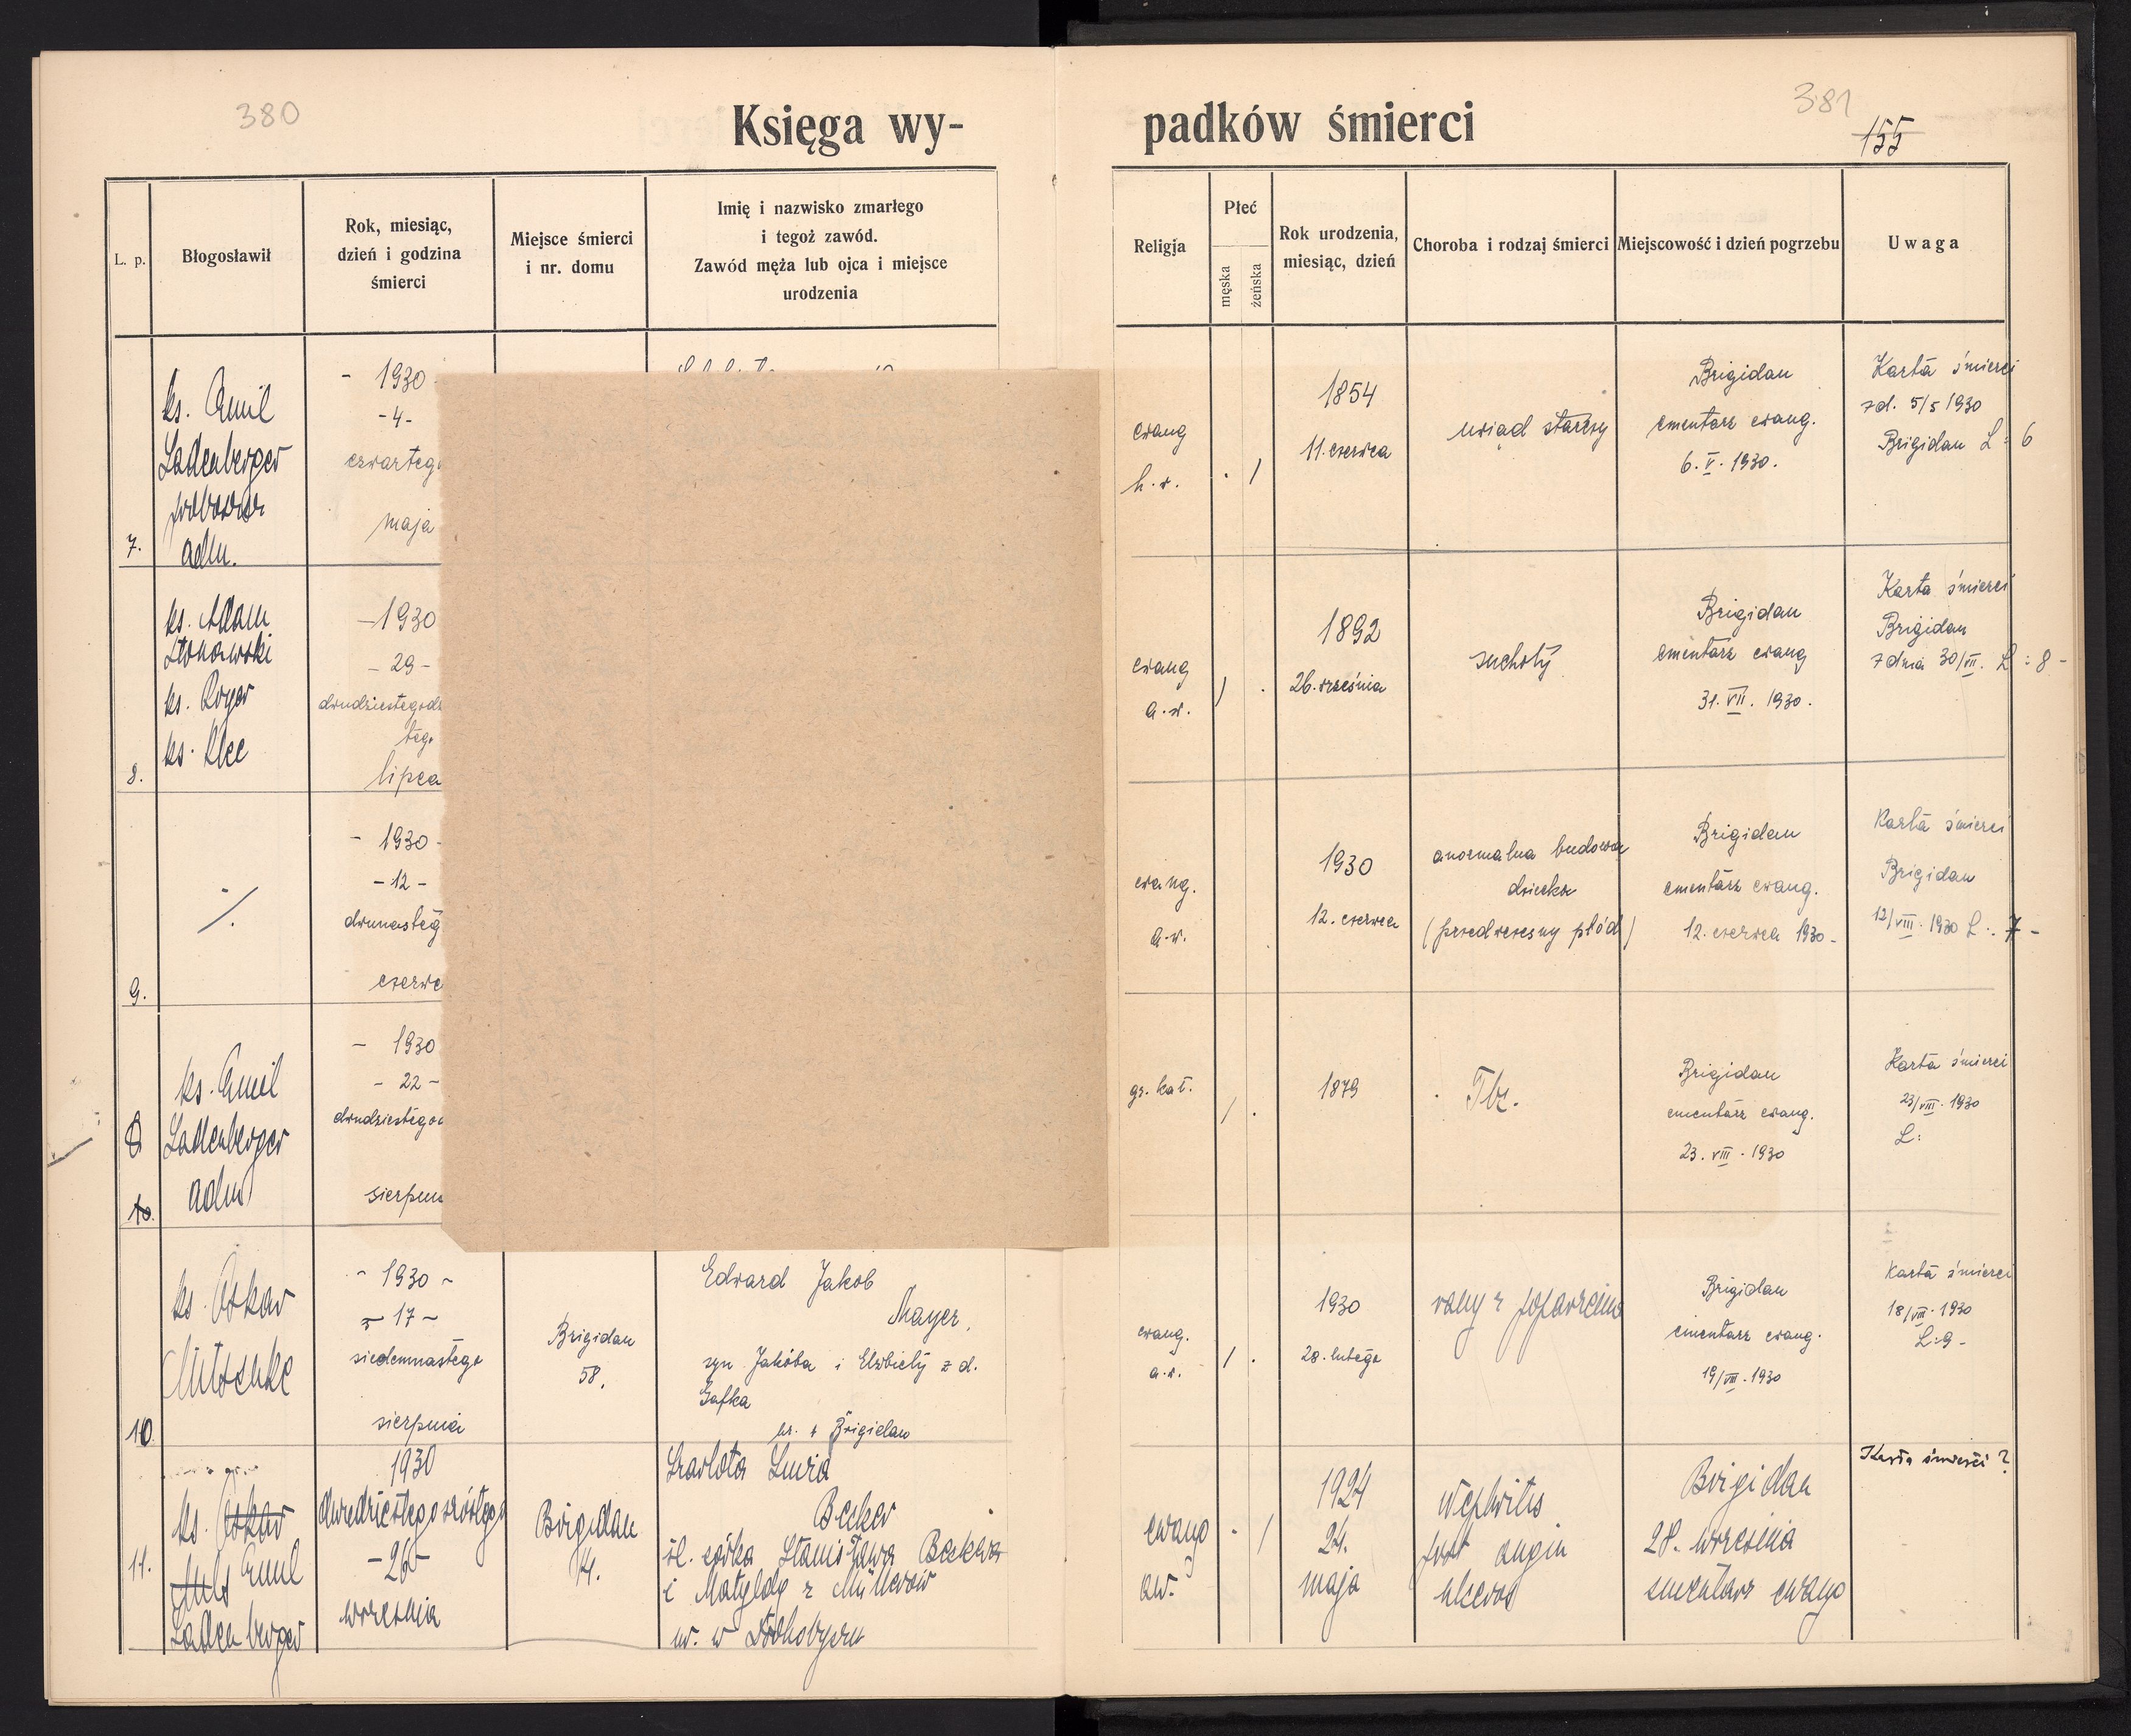 380
Księga wy-
padków śmierci
381
155
L. p.
Błogosławił
Rok, miesiąc,
dzień i godzina
śmierci
Miejsce śmierci
i nr. domu
Imię i nazwisko zmarłego
i tegoż zawód.
Zawód męża lub ojca i miejsce
urodzenia
Religja
Płeć
męska
żeńska
Rok urodzenia,
miesiąc, dzień
Choroba i rodzaj śmierci
Miejscowość i dzień pogrzebu
Uwaga
7.
ks. Emil
Ladenberger
adm.
- 1930
- 4 -
maja
ewang
h. w.
. /
1854
11. czerwca
uwiąd starczy
Brigidau
cmentarz ewang.
6. V. 1930.
Karta śmierci
z d. 5/5 1930
Brigidau L: 6
8.
ks. Adam
Stonawski
ks. Royer
ks. Klee
- 1930
- 29 -
lipca
ewang
a. w.
/ .
1892
26. września
suchoty
Brigidau
cmentarz ewang
31. VII. 1930.
Karta śmierci
Brigidau
z dnia 30/VII. L: 8 -
9.
./.
- 1930 -
- 12 -
ewang.
a. w.
.
1930
12. czerwca
anormalna budowa
dziecka
(przedwczesny płód)
Brigidau
cmentarz ewang.
12. czerwca 1930 -
Karta śmierci
Brigidau
12/VIII. 1930 L: 7 -
10.
ks. Emil
Ladenberger
adm
- 1930
- 22 -
gr. kat.
/ .
1879
Tbc.
Brigidau
cmentarz ewang.
23. VIII. 1930
Karta śmierci
23/VIII. 1930
L:
10
ks. Oskar
Mitschke
- 1930 -
- 17 -
siedemnastego
sierpnia
Brigidau
58.
Edward Jakob
Mayer,
syn Jakóba i Elżbiety z d.
Gafka
ur. w Brigidau
ewang.
a. w.
/ .
1930
28. lutego
rany z poparzenia
Brigidau
cmentarz ewang.
19/VIII. 1930
Karta śmierci
18/VIII. 1930
L: 9 -
11.
ks. Oskar
Emil
Ladenberger
1930
dwudziestego szóstego
- 26 -
września
Brigidau
14.
Szarlota Luiza
Becker
śl. córka Stanisława Beckera
i Matyldy z Müllerów
ur. w Drohobyczu
ewang
aw.
. /
1924
24.
maja
Nephritis
post angin
ulceros
Brigidau
28. września
cmentarz ewang
Karta śmierci ?